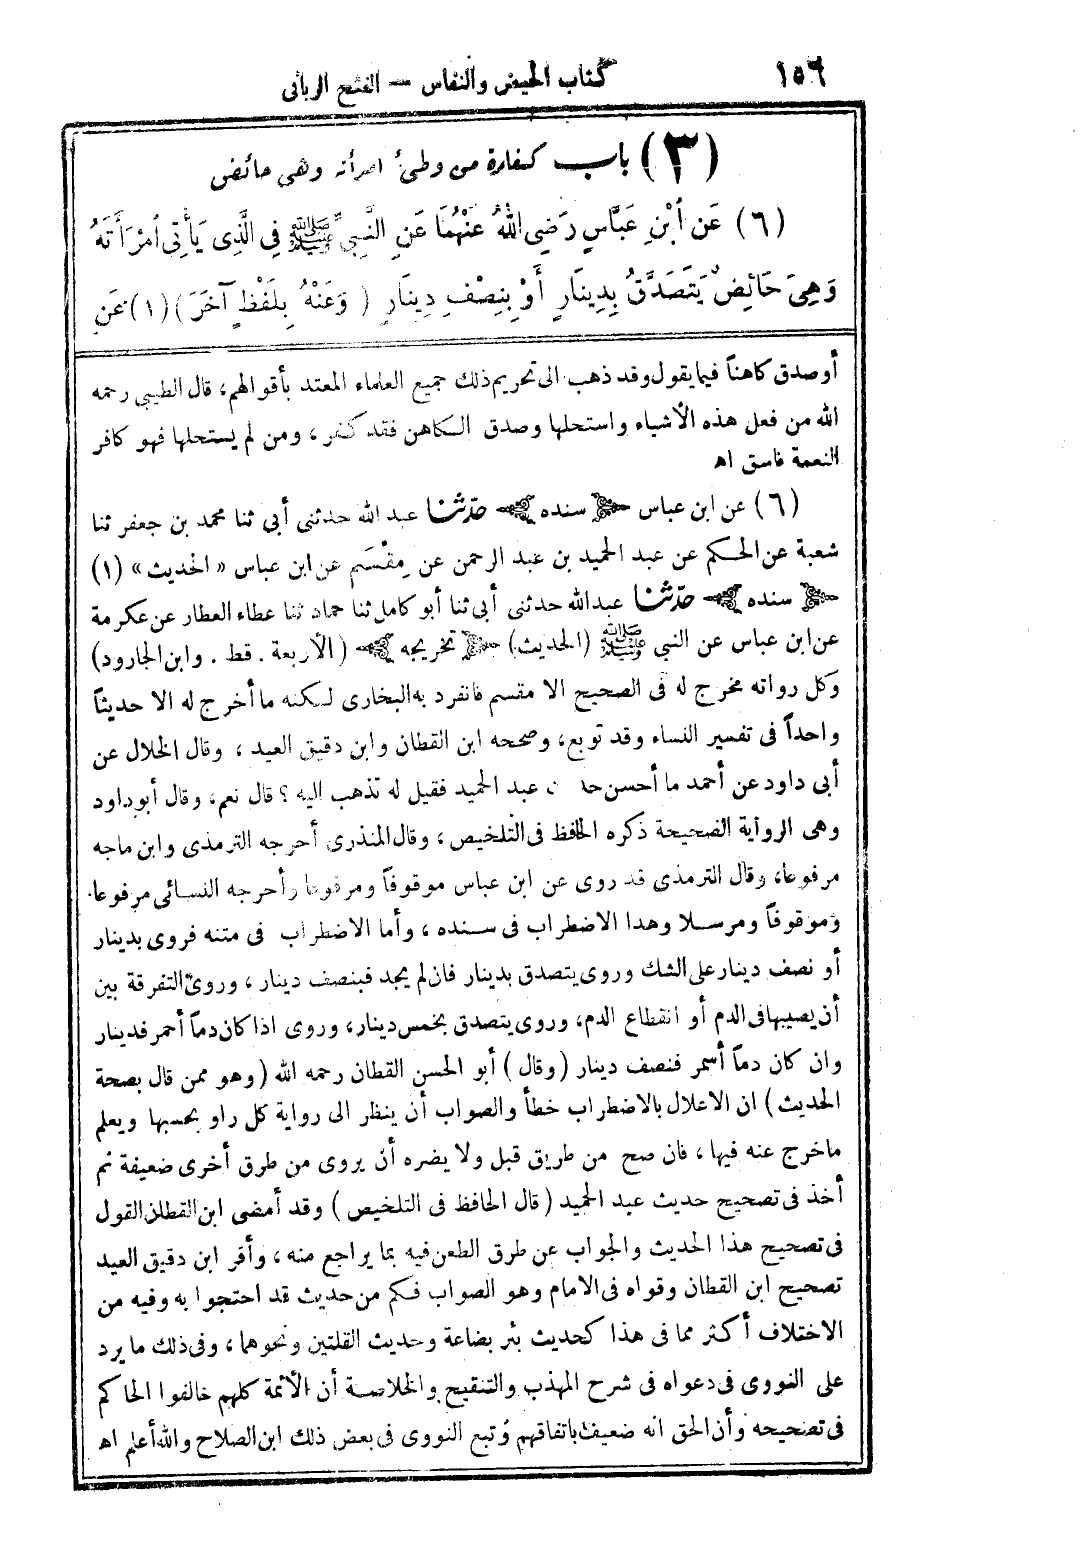 ١٥٦
كتاب الحيض والنفاس — الفتح الربانى
(٣) باب كفارة من وطئ امرأته وهى حائض
(٦) عَنِ ٱبْنِ عَبَّاسٍ رَضِيَ اللهُ عَنْهُمَا عَنِ النَّبِيِّ ﷺ فِي الَّذِى يَأْتِى ٱمْرَأَتَهُ
وَهِيَ حَائِضٌ يَتَصَدَّقُ بِدِينَارٍ أَوْ بِنِصْفِ دِينَارٍ (وَعَنْهُ بِلَفْظٍ آخَرَ) (١) عَنِ
أو صدق كاهناً فيما يقول وقد ذهب الى تحريم ذلك جميع العلماء المعتد بأقوالهم، قال الطيبى رحمه
الله من فعل هذه الأشياء واستحلها وصدق الكاهن فقد كفر، ومن لم يستحلها فهو كافر
النعمة فاسق اه
(٦) عن ابن عباس ﴿ سنده ﴾ حدّثنا عبد الله حدثنى أبى ثنا محمد بن جعفر ثنا
شعبة عن الحكم عن عبد الحميد بن عبد الرحمن عن مِقْسَم عن ابن عباس «الحديث» (١)
﴿ سنده ﴾ حدّثنا عبد الله حدثنى أبى ثنا أبو كامل ثنا حماد ثنا عطاء العطار عن عكرمة
عن ابن عباس عن النبى ﷺ (الحديث) ﴿ تخريجه ﴾ (الأربعة . قط . وابن الجارود)
وكل رواته مخرج له فى الصحيح الا مقسم فانفرد به البخارى لكنه ما أخرج له الا حديثاً
واحداً فى تفسير النساء وقد توبع، وصححه ابن القطان وابن دقيق العيد ، وقال الخلال عن
أبى داود عن أحمد ما أحسن عبد الحميد فقيل له تذهب اليه ؟ قال نعم، وقال أبو داود
وهى الرواية الصحيحة ذكره الحافظ فى التلخيص ، وقال المنذرى أخرجه الترمذى وابن ماجه
مرفوعا، وقال الترمذى قد روى عن ابن عباس موقوفاً ومرفوعا وأخرجه النسائى مرفوعا
وموقوفاً ومرسلا وهذا الاضطراب فى سنده ، وأما الاضطراب فى متنه فروى بدينار
أو نصف دينار على الشك وروى يتصدق بدينار فان لم يجد فبنصف دينار ، وروى التفرقة بين
أن يصيبها فى الدم أو انقطاع الدم، وروى يتصدق بخمس دينار، وروى اذا كان دماً أحمر فدينار
وان كان دماً أسمر فنصف دينار (وقال) أبو الحسن القطان رحمه الله (وهو ممن قال بصحة
الحديث) ان الاعلال بالاضطراب خطأ والصواب أن ينظر الى رواية كل راو بحسبها ويعلم
ماخرج عنه فيها ، فان صح من طريق قبل ولا يضره أن يروى من طرق أخرى ضعيفة ثم
أخذ فى تصحيح حديث عبد الحميد (قال الحافظ فى التلخيص) وقد أمضى ابن القطان القول
فى تصحيح هذا الحديث والجواب عن طرق الطعن فيه بما يراجع منه ، وأقر ابن دقيق العيد
تصحيح ابن القطان وقواه فى الامام وهو الصواب فكم من حديث قد احتجوا به وفيه من
الاختلاف أكثر مما فى هذا كحديث بئر بضاعة وحديث القلتين ونحوهما ، وفى ذلك ما يرد
على النووى فى دعواه فى شرح المهذب والتنقيح والخلاصة أن الأئمة كلهم خالفوا الحاكم
فى تصحيحه وأن الحق انه ضعيف باتفاقهم وتبع النووى فى بعض ذلك ابن الصلاح والله أعلم اه